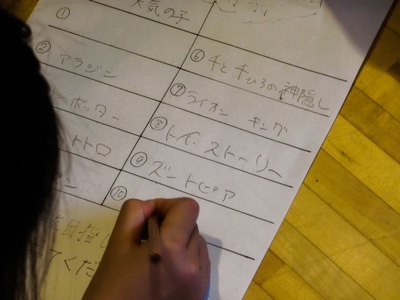 天気の子
①
② アラジン
ポッター
トトロ
⑥ 千と千ひろの神隠し
⑦ ライオン キング
⑧ トイ・ストーリー
⑨ ズートピア
⑩
目指し
てくだ